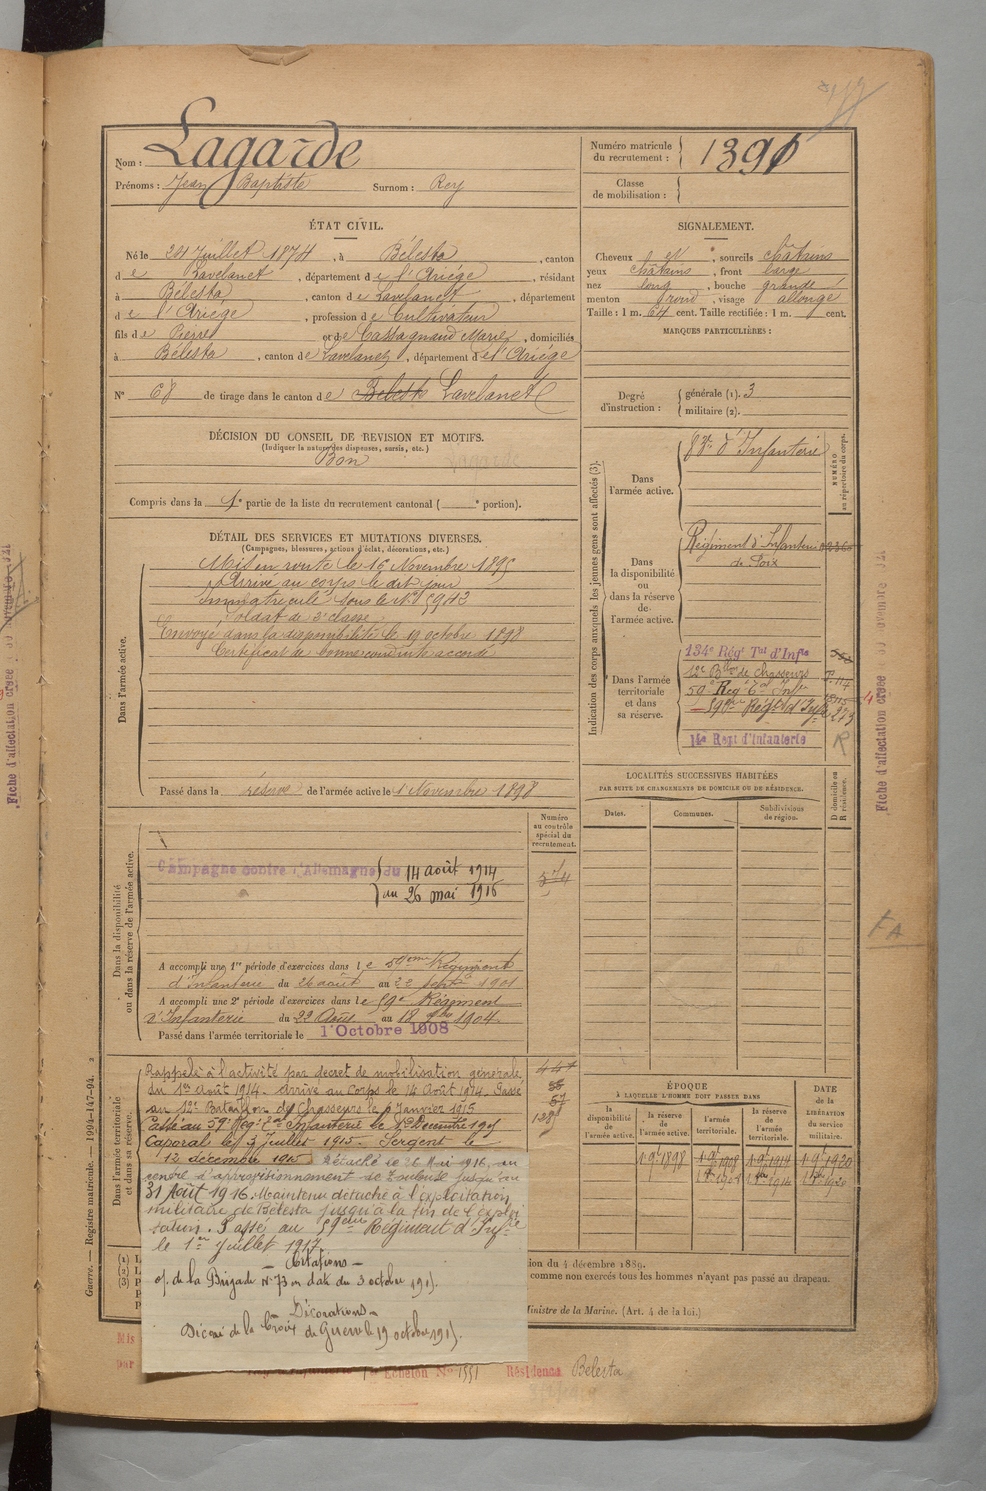 Nom : Lagarde
Prénoms : Jean Baptiste Surnom : Rey
Numéro matricule du recrutement : 1391
Classe de mobilisation :
ÉTAT CIVIL.
Né le 24 Juillet 1874, à Bélesta, canton
de Lavelanet, département de l'Ariége, résidant
à Bélesta, canton de Lavelanet, département
de l'Ariége, profession de Cultivateur
fils de Pierre et de Cassagnaud Marie, domiciliés
à Bélesta, canton de Lavelanet, département de l'Ariége
N° 68 de tirage dans le canton de Bélesta Lavelanet
SIGNALEMENT.
Cheveux et, sourcils châtains
yeux châtains, front large
nez long, bouche grande
menton rond, visage allongé
Taille : 1 m. 64 cent. Taille rectifiée : 1 m. cent.
MARQUES PARTICULIÈRES :
Degré d'instruction : générale (1). 3
militaire (2).
DÉCISION DU CONSEIL DE REVISION ET MOTIFS.
(Indiquer la nature des dispenses, sursis, etc.)
Bon
Compris dans la 1e partie de la liste du recrutement cantonal ( e portion).
DÉTAIL DES SERVICES ET MUTATIONS DIVERSES.
(Campagnes, blessures, actions d'éclat, décorations, etc.)
Dans l'armée active.
Mis en route le 16 Novembre 1895
Arrivé au corps le dit jour
Immatriculé sous le N° 5942
Soldat de 2e classe
Envoyé dans la disponibilité le 19 octobre 1898
Certificat de bonne conduite accordé
Passé dans la réserve de l'armée active le 1 Novembre 1898
Indication des corps auxquels les jeunes gens sont affectés (3).
NUMÉRO au répertoire du corps.
Dans l'armée active.
83e d'Infanterie
Dans la disponibilité ou dans la réserve de l'armée active.
Régiment d'Infanterie
de Foix
Dans l'armée territoriale et dans sa réserve.
134e Régt Tal d'Infie
12e Bon de chasseurs
50e Regt Tal Infie
59eme Régt d'Infie 273
14e Regt d'Infanterie
R
LOCALITÉS SUCCESSIVES HABITÉES
PAR SUITE DE CHANGEMENTS DE DOMICILE OU DE RÉSIDENCE.
Dates.
Communes.
Subdivisions de région.
D domicile ou R résidence.
Dans la disponibilité ou dans la réserve de l'armée active.
Numéro au contrôle spécial du recrutement.
Campagne contre l'Allemagne du 14 août 1914
au 26 mai 1916
574
A accompli une 1re période d'exercices dans le 59eme Régiment
d'Infanterie du 26 août au 22 Septe 1901
A accompli une 2e période d'exercices dans le 59e Régiment
d'Infanterie du 22 Août au 18 7bre 1904
Passé dans l'armée territoriale le 1 Octobre 1908
Dans l'armée territoriale et dans sa réserve.
Rappelé à l'activité par décret de mobilisation générale
du 1er Août 1914. Arrivé au Corps le 14 Août 1914. Passé
au 12e Bataillon de Chasseurs le 6 Janvier 1915
Passé au 59e Régt Tal Infanterie le 1er Décembre 1915
Caporal le 3 Juillet 1915 - Sergent le
12 décembre 1915 Détaché le 26 Mai 1916, au
centre d'approvisionnement de Toulouse jusqu'au
31 Août 1916. Maintenu détaché à l'exploitation
militaire de Bélesta jusqu'à la fin de l'exploi
tation. Passé au 59eme Régiment d'Infie
le 1er Juillet 1917
- Citations -
o/ de la Brigade N° 73 en date du 3 octobre 1915.
- Décorations -
Décoré de la Croix de Guerre le 19 octobre 1915.
ÉPOQUE
À LAQUELLE L'HOMME DOIT PASSER DANS
la disponibilité de l'armée active.
la réserve de l'armée active.
l'armée territoriale.
la réserve de l'armée territoriale.
DATE de la LIBÉRATION du service militaire.
1 9e 1898
1 9e 1908
1 9e 1914
1 9e 1920
ion du 4 décembre 1889.
comme non exercés tous les hommes n'ayant pas passé au drapeau.
Ministre de la Marine. (Art. 4 de la loi.)
Mis
par
Echelon No 1551 Résidence Bélesta
Guerre. — Registre matricule. — 1904-147-94.
Fiche d'affectation créée
FA